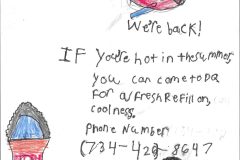 We're back!
If you're hot in the summer,
you can come to DQ
for a fresh Refill on
coolness.
Phone Number
(734-422-8647